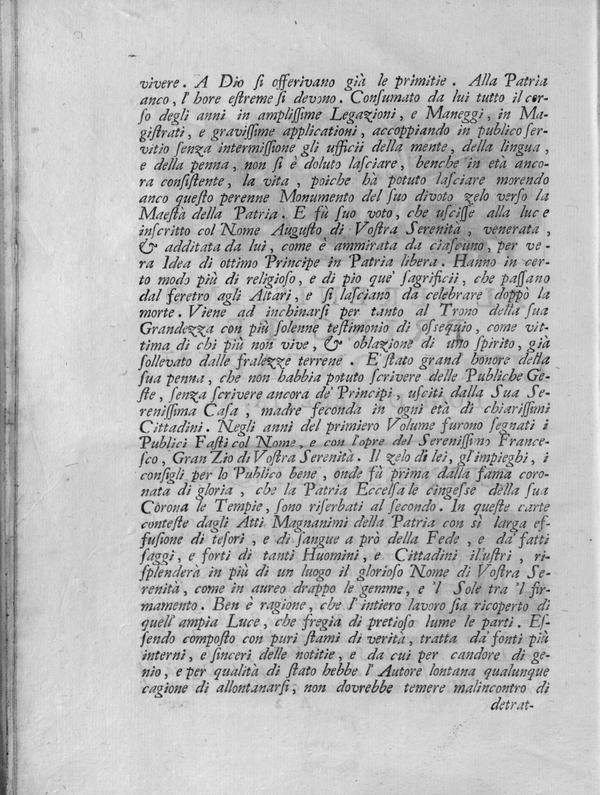 vivere. A Dio ſi offerivano già le primitie. Alla Patria
anco, l'hore eſtreme ſi devono. Conſumato da lui tutto il cor-
ſo degli anni in ampliſſime Legazioni, e Maneggi, in Ma-
giſtrati, e graviſſime applicationi, accoppiando in publico ſer-
vitio ſenza intermiſſione gli ufficii della mente, della lingua,
e della penna, non ſi è doluto laſciare, benche in età anco-
ra conſiſtente, la vita, poiche hà potuto laſciare morendo
anco queſto perenne Monumento del ſuo divoto zelo verſo la
Maeſtà della Patria. E fù ſuo voto, che uſciſſe alla luce
inſcritto col Nome Auguſto di Voſtra Serenità, venerata,
& additata da lui, come è ammirata da ciaſcuno, per ve-
ra Idea di ottimo Principe in Patria libera. Hanno in cer-
to modo più di religioſo, e di pio que' ſagrificii, che paſſano
dal feretro agli Altari, e ſi laſciano da celebrare doppò la
morte. Viene ad inchinarſi per tanto al Trono della ſua
Grandezza con più ſolenne teſtimonio di oſſequio, come vit-
tima di chi più non vive, & oblazione di uno ſpirito, già
ſollevato dalle fralezze terrene. E' ſtato grand honore della
ſua penna, che non habbia potuto ſcrivere delle Publiche Ge-
ſte, ſenza ſcrivere ancora de' Principi, uſciti dalla Sua Se-
reniſſima Caſa, madre feconda in ogni età di chiariſſimi
Cittadini. Negli anni del primiero Volume furono ſegnati i
Publici Faſti col Nome, e con l'opre del Sereniſſimo France-
ſco, Gran Zio di Voſtra Serenità. Il zelo di lei, gl'impieghi, i
conſigli per lo Publico bene, onde fù prima dalla fama coro-
nata di gloria, che la Patria Eccelſa le cingeſſe della ſua
Corona le Tempie, ſono riſerbati al ſecondo. In queſte carte
conteſte dagli Atti Magnanimi della Patria con sì larga ef-
fuſione di teſori, e di ſangue a prò della Fede, e da' fatti
ſaggi, e forti di tanti Huomini, e Cittadini illuſtri, ri-
ſplenderà in più di un luogo il glorioſo Nome di Voſtra Se-
renità, come in aureo drappo le gemme, e 'l Sole tra 'l fir-
mamento. Ben è ragione, che l'intiero lavoro ſia ricoperto di
quell'ampia Luce, che fregia di pretioſo lume le parti. Eſ-
ſendo compoſto con puri ſtami di verità, tratta da' fonti più
interni, e ſinceri delle notitie, e da cui per candore di ge-
nio, e per qualità di ſtato hebbe l'Autore lontana qualunque
cagione di allontanarſi, non dovrebbe temere malincontro di
detrat-